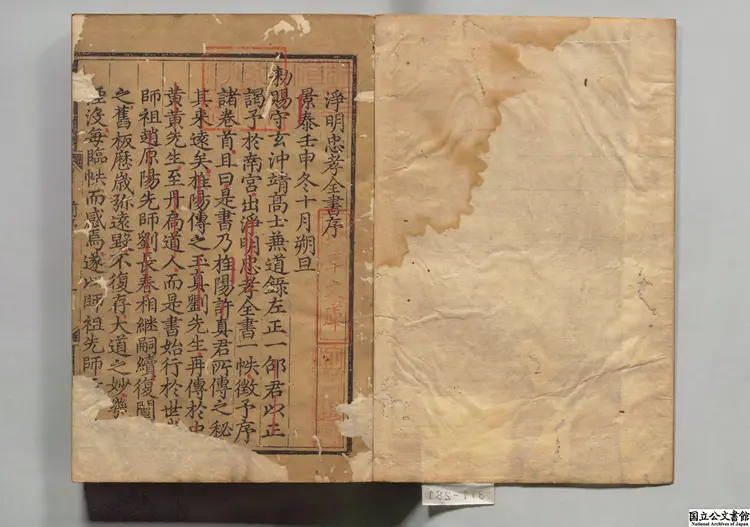 淨明忠孝全書序
景泰壬申冬十月朔旦
勑賜守玄沖靖髙士兼道錄左正一邵君以正
謁予於南宮出淨明忠孝全書一帙徵予序
諸卷首且曰是書乃旌陽許真君所傳之秘
其来遠矣旌陽傳之玉真劉先生再傳於中
黃黃先生至丹扃道人而是書始行於世
師祖趙原陽先師劉長春相継嗣續復
之舊板歷歲弥遠毀不復存大道之妙幾
湮沒每臨帙而感焉遂以師祖先師
国立公文書館
National Archives of Japan